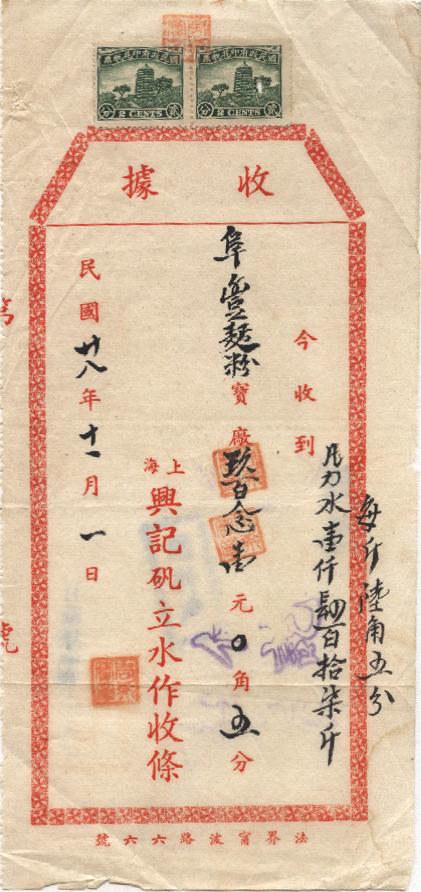 國民政府印花稅票
貳 2 CENTS 分
國民政府印花稅票
貳 2 CENTS 分
收據
每斤陸角五分
凡力水壹仟肆百拾柒斤
今收到
阜豐麵粉寶廠
玖百念壹元0角五分
上海興記矾立水作收條
民國廿八年十一月一日
法界甯波路六六號